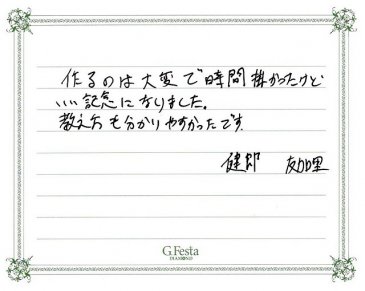 作るのは大変で時間掛かったけど
いい記念になりました。
教え方も分かりやすかったです。
健郎
G.Festa
DIAMOND